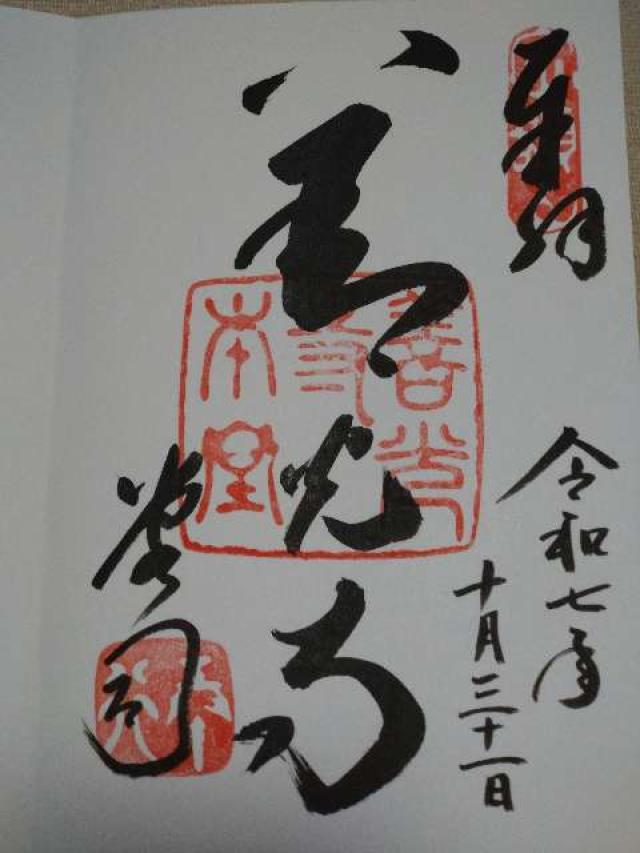 奉拝
令和七年
十月三十一日
善光寺
善光寺本堂
堂司